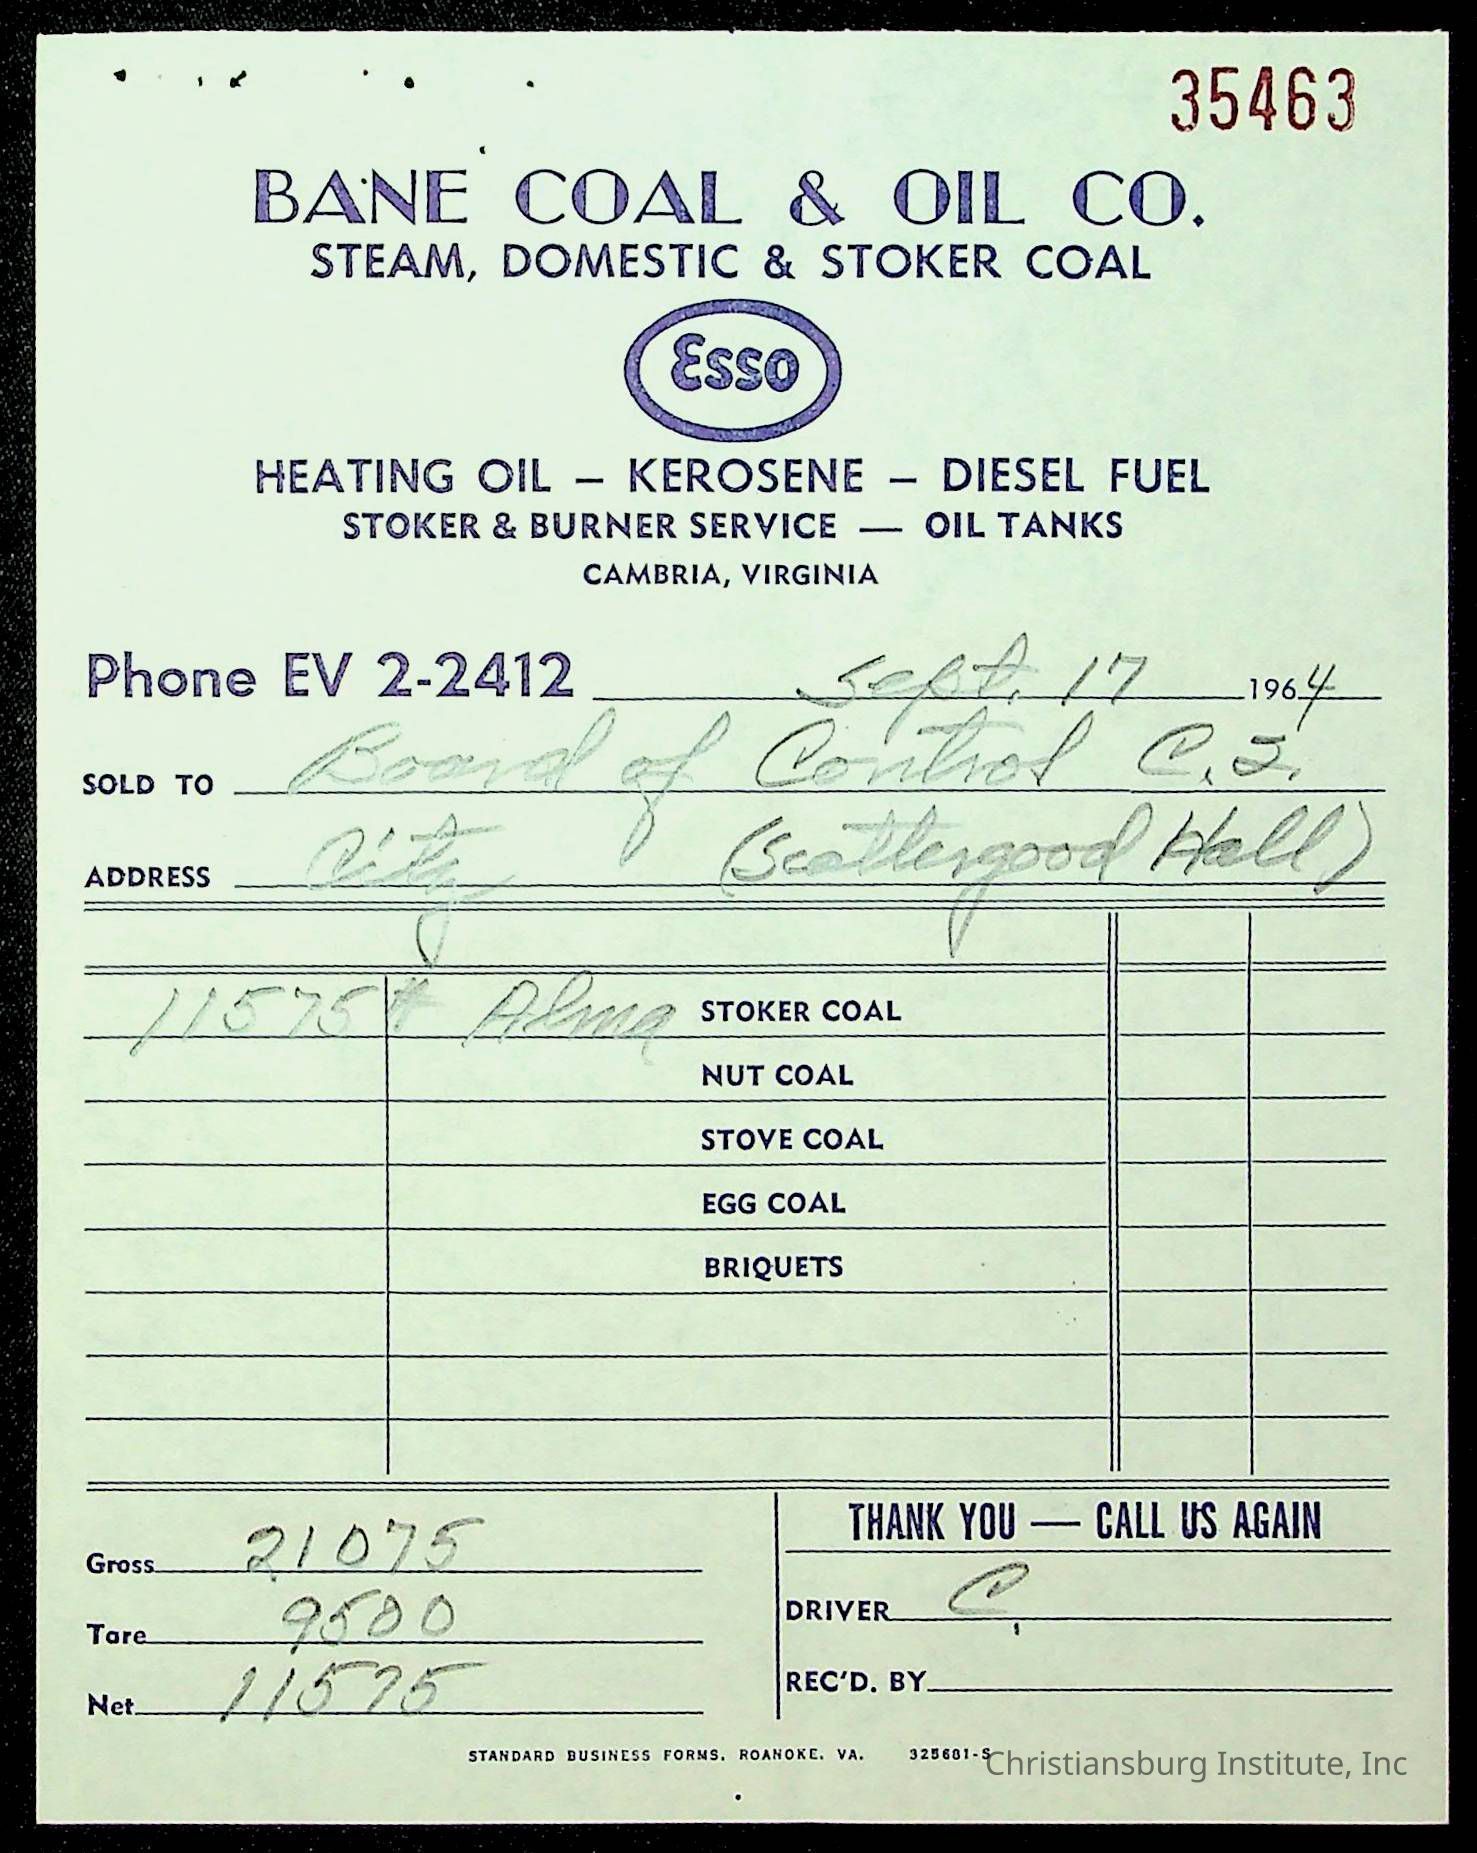 35463
BANE COAL & OIL CO.
STEAM, DOMESTIC & STOKER COAL
Esso
HEATING OIL – KEROSENE – DIESEL FUEL
STOKER & BURNER SERVICE — OIL TANKS
CAMBRIA, VIRGINIA
Phone EV 2-2412 Sept. 17 1964
SOLD TO Board of Control C.I.
ADDRESS City (Scattergood Hall)
11575 # Alma STOKER COAL
NUT COAL
STOVE COAL
EGG COAL
BRIQUETS
THANK YOU — CALL US AGAIN
Gross 21075
Tare 9500
Net 11575
DRIVER C.
REC'D. BY
STANDARD BUSINESS FORMS, ROANOKE, VA. 325681-S
Christiansburg Institute, Inc